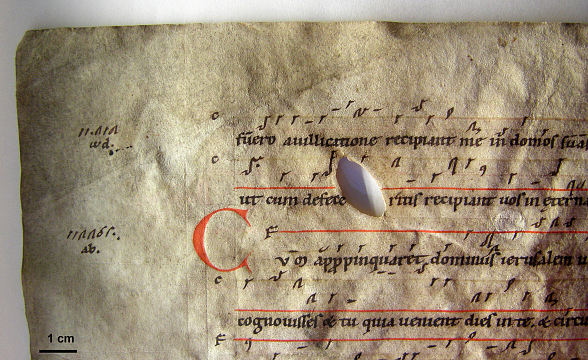 fuero a uillicatione recipiant me in domos suas
wd.
ut cum defece ritis recipiant uos in eterna
F
ab.
C
v m apppinquaret dominus ierusalem
c
cognouisses & tu quia uenient dies in te. & circu
F
1 cm